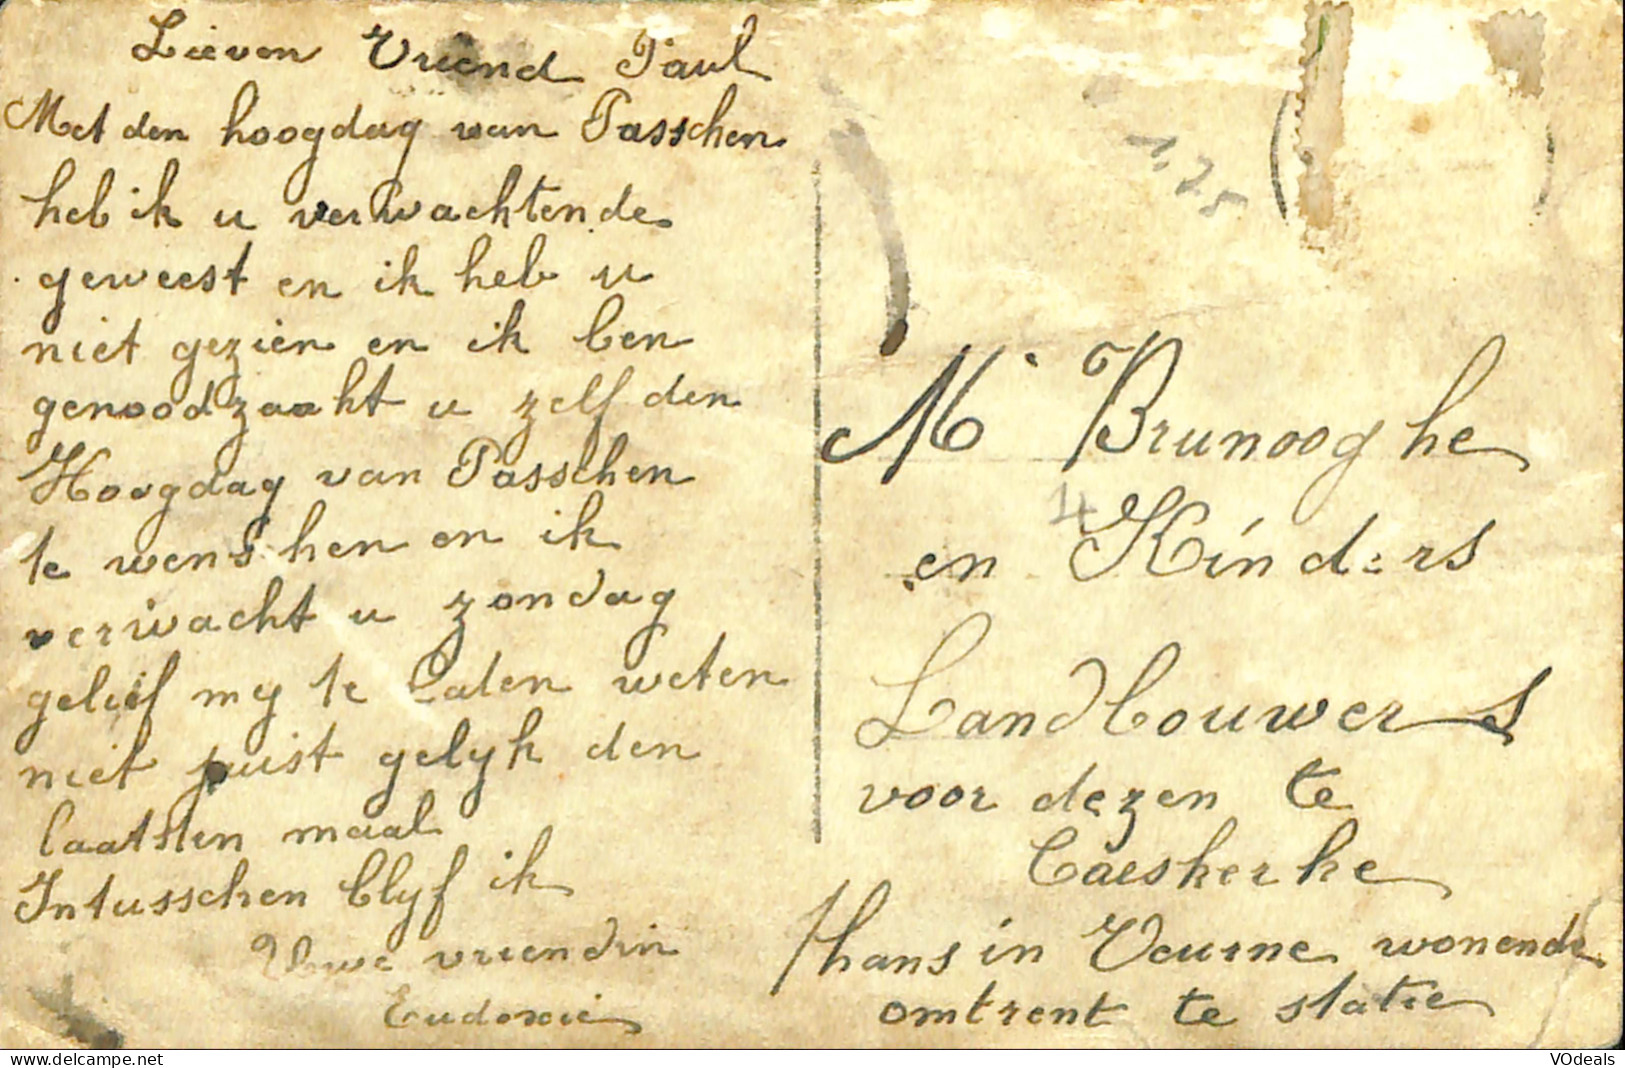 Lieven Vriend Paul
Met den hoogdag van Passchen
heb ik u verwachtende
geweest en ik heb u
niet gezien en ik ben
genoodzaakt u zelf den
Hoogdag van Passchen
te wenschen en ik
verwacht u zondag
gelief my te laten weten
niet juist gelyk den
laatsten maal
Intusschen blyf ik
Uwe vriendin
Eudoxie
1,25
Mr Brunooghe
4
en Kinders
Landbouwers
voor dezen te
Caeskerke
thans in Veurne wonende
omtrent te statie
VOdeals
https://www.delcampe.net